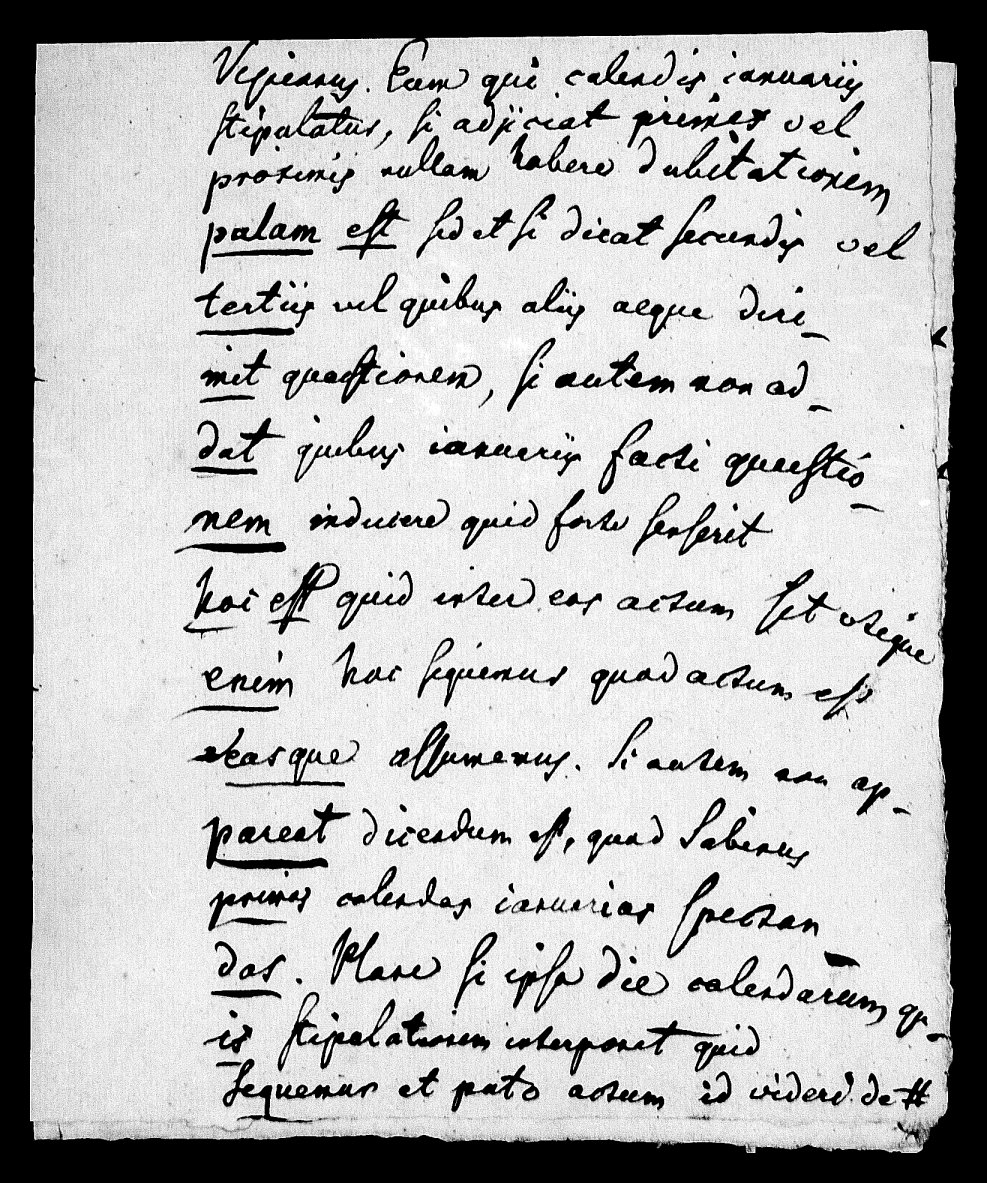 Ulpianus. Eum qui calendis ianuariis
stipulatur, si adjiciat primis vel
proximis nullam habere dubitationem
palam est sed et si dicat secundis vel
tertiis vel quibus aliis aeque diri-
mit quaestionem, si autem non ad-
dat quibus ianuariis facti quaestio-
nem inducere quid forte senserit
hoc est quid inter eos actum sit utique
enim hoc sequemur quod actum est
easque assumemus. Si autem non ap-
pareat dicendum est, quod Sabinus
primas calendas ianuarias spectan
das. Plane si ipsa die calendarum qu-
is stipulationem interponat quid
sequemur et puto actum id videri de #